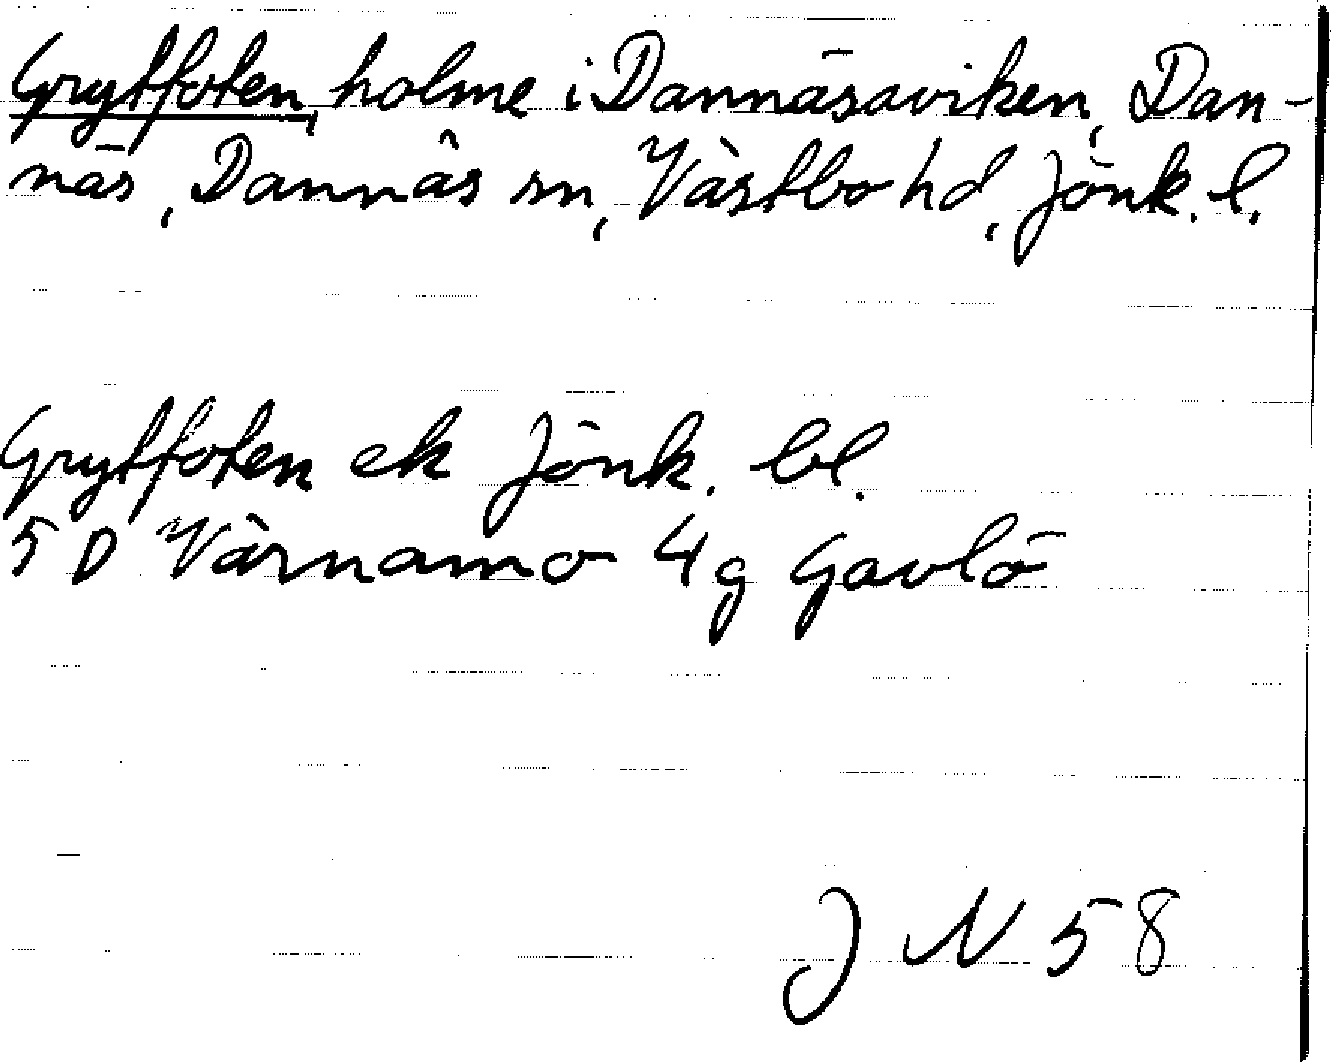 Grytfoten, holme i Dannäsaviken, Dan-
näs, Dannäs sn, Västbo hd, Jönk. l.
Grytfoten ek Jönk. bl.
5 D Värnamo 4 g Gavlö
J N 58